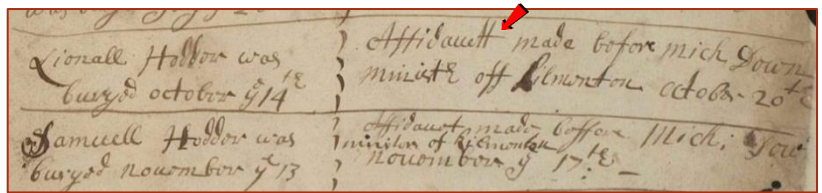 Lionall Hodder was
buryed october ye 14th
Affidavett made before mich Down
ministr off Kilmonton october 20th
Samuell Hodder was
buryed november ye 13
Affidavet made beffore Mich: Dow
minister of Kilmonton
november ye 17th